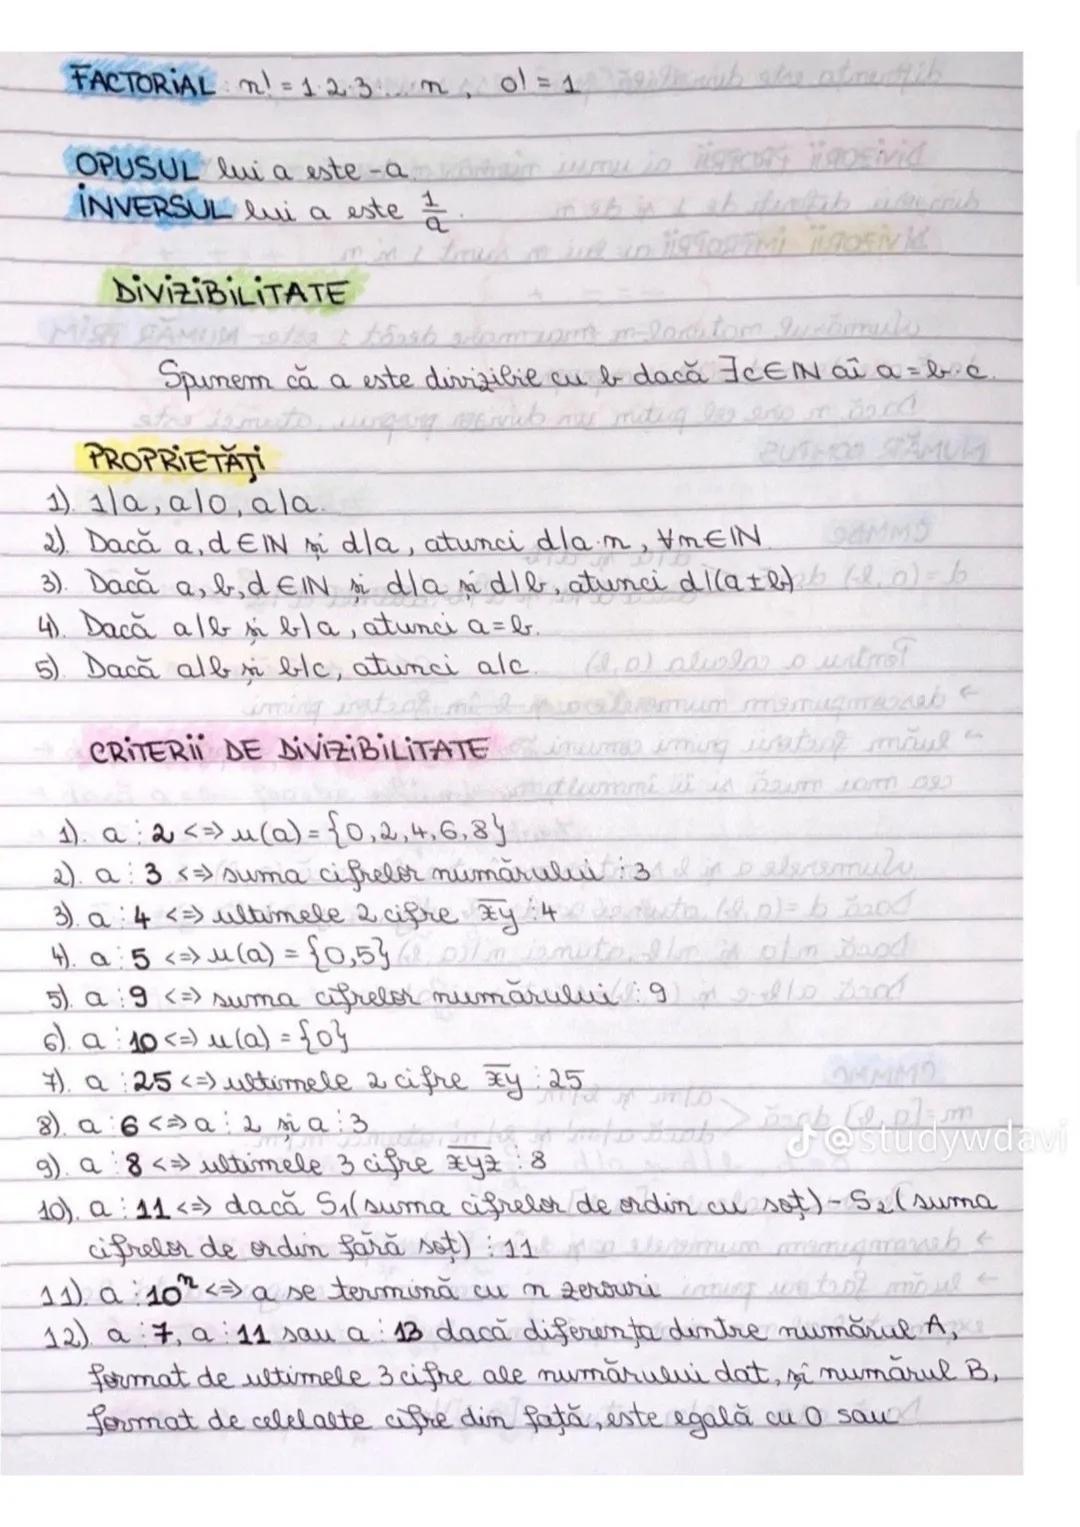 FACTORIAL : n! = 1·2·3·...·n, 0! = 1
OPUSUL lui a este -a.
INVERSUL lui a este 1/a.
DIVIZIBILITATE
Spunem că a este divizibil cu b dacă ∃c∈ℕ aî a = b·c.
PROPRIETĂȚI
1). 1|a, a|0, a|a.
2). Dacă a, d ∈ ℕ și d|a, atunci d|a·n, ∀n∈ℕ
3). Dacă a, b, d ∈ ℕ și d|a și d|b, atunci d|(a±b)
4). Dacă a|b și b|a, atunci a=b.
5). Dacă a|b și b|c, atunci a|c.
CRITERII DE DIVIZIBILITATE
1). a ⋮ 2 <=> u(a) = {0,2,4,6,8}
2). a ⋮ 3 <=> suma cifrelor numărului ⋮ 3
3). a ⋮ 4 <=> ultimele 2 cifre x̅y̅ ⋮ 4
4). a ⋮ 5 <=> u(a) = {0,5}
5). a ⋮ 9 <=> suma cifrelor numărului ⋮ 9
6). a ⋮ 10 <=> u(a) = {0}
7). a ⋮ 25 <=> ultimele 2 cifre x̅y̅ ⋮ 25
8). a ⋮ 6 <=> a ⋮ 2 și a ⋮ 3
@studywdavi
9). a ⋮ 8 <=> ultimele 3 cifre x̅y̅z̅ ⋮ 8
10). a ⋮ 11 <=> dacă S₁(suma cifrelor de ordin cu soț) - S₂(suma
cifrelor de ordin fără soț) ⋮ 11
11). a ⋮ 10ⁿ <=> a se termină cu n zerouri
12). a ⋮ 7, a ⋮ 11 sau a ⋮ 13 dacă diferența dintre numărul A,
format de ultimele 3 cifre ale numărului dat, și numărul B,
format de celelalte cifre din față, este egală cu 0 sau